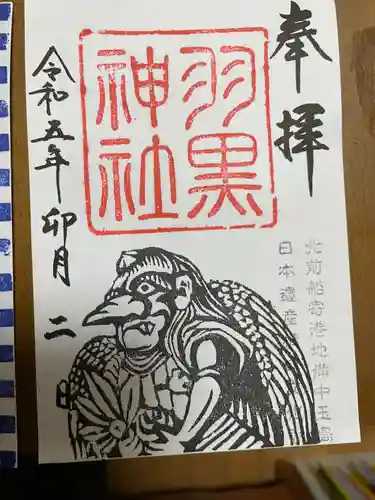 奉拝
羽黒
神社
令和五年 卯月 二日
北前船寄港地備中玉島
日本遺産